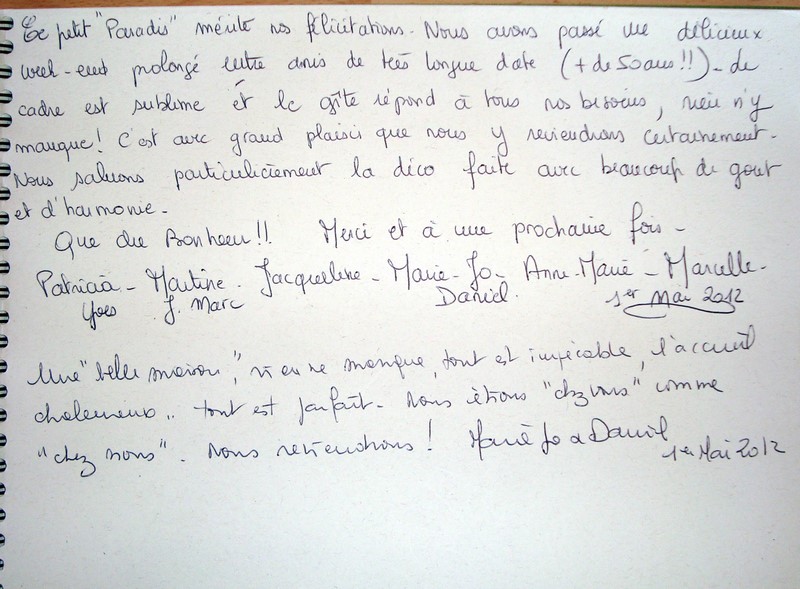 Ce petit "Paradis" mérite nos félicitations. Nous avons passé un délicieux
week-end prolongé entre amis de très longue date (+ de 50 ans !!) - Le
cadre est sublime et le gîte répond à tous nos besoins, rien n'y
manque ! C'est avec grand plaisir que nous y reviendrons certainement.
Nous saluons particulièrement la déco faite avec beaucoup de gout
et d'harmonie.
Que du Bonheur !! Merci et à une prochaine fois -
Patricia - Martine - Jacqueline - Marie-Jo - Anne-Marie - Marcelle -
Yves J. Marc Daniel 1er Mai 2012
Une "belle maison", rien ne manque, tout est impécable, l'accueil
chaleureux .. tout est parfait - Nous étions "chez vous" comme
"chez nous". Nous reviendrons ! Marie Jo a Daniel
1er Mai 2012